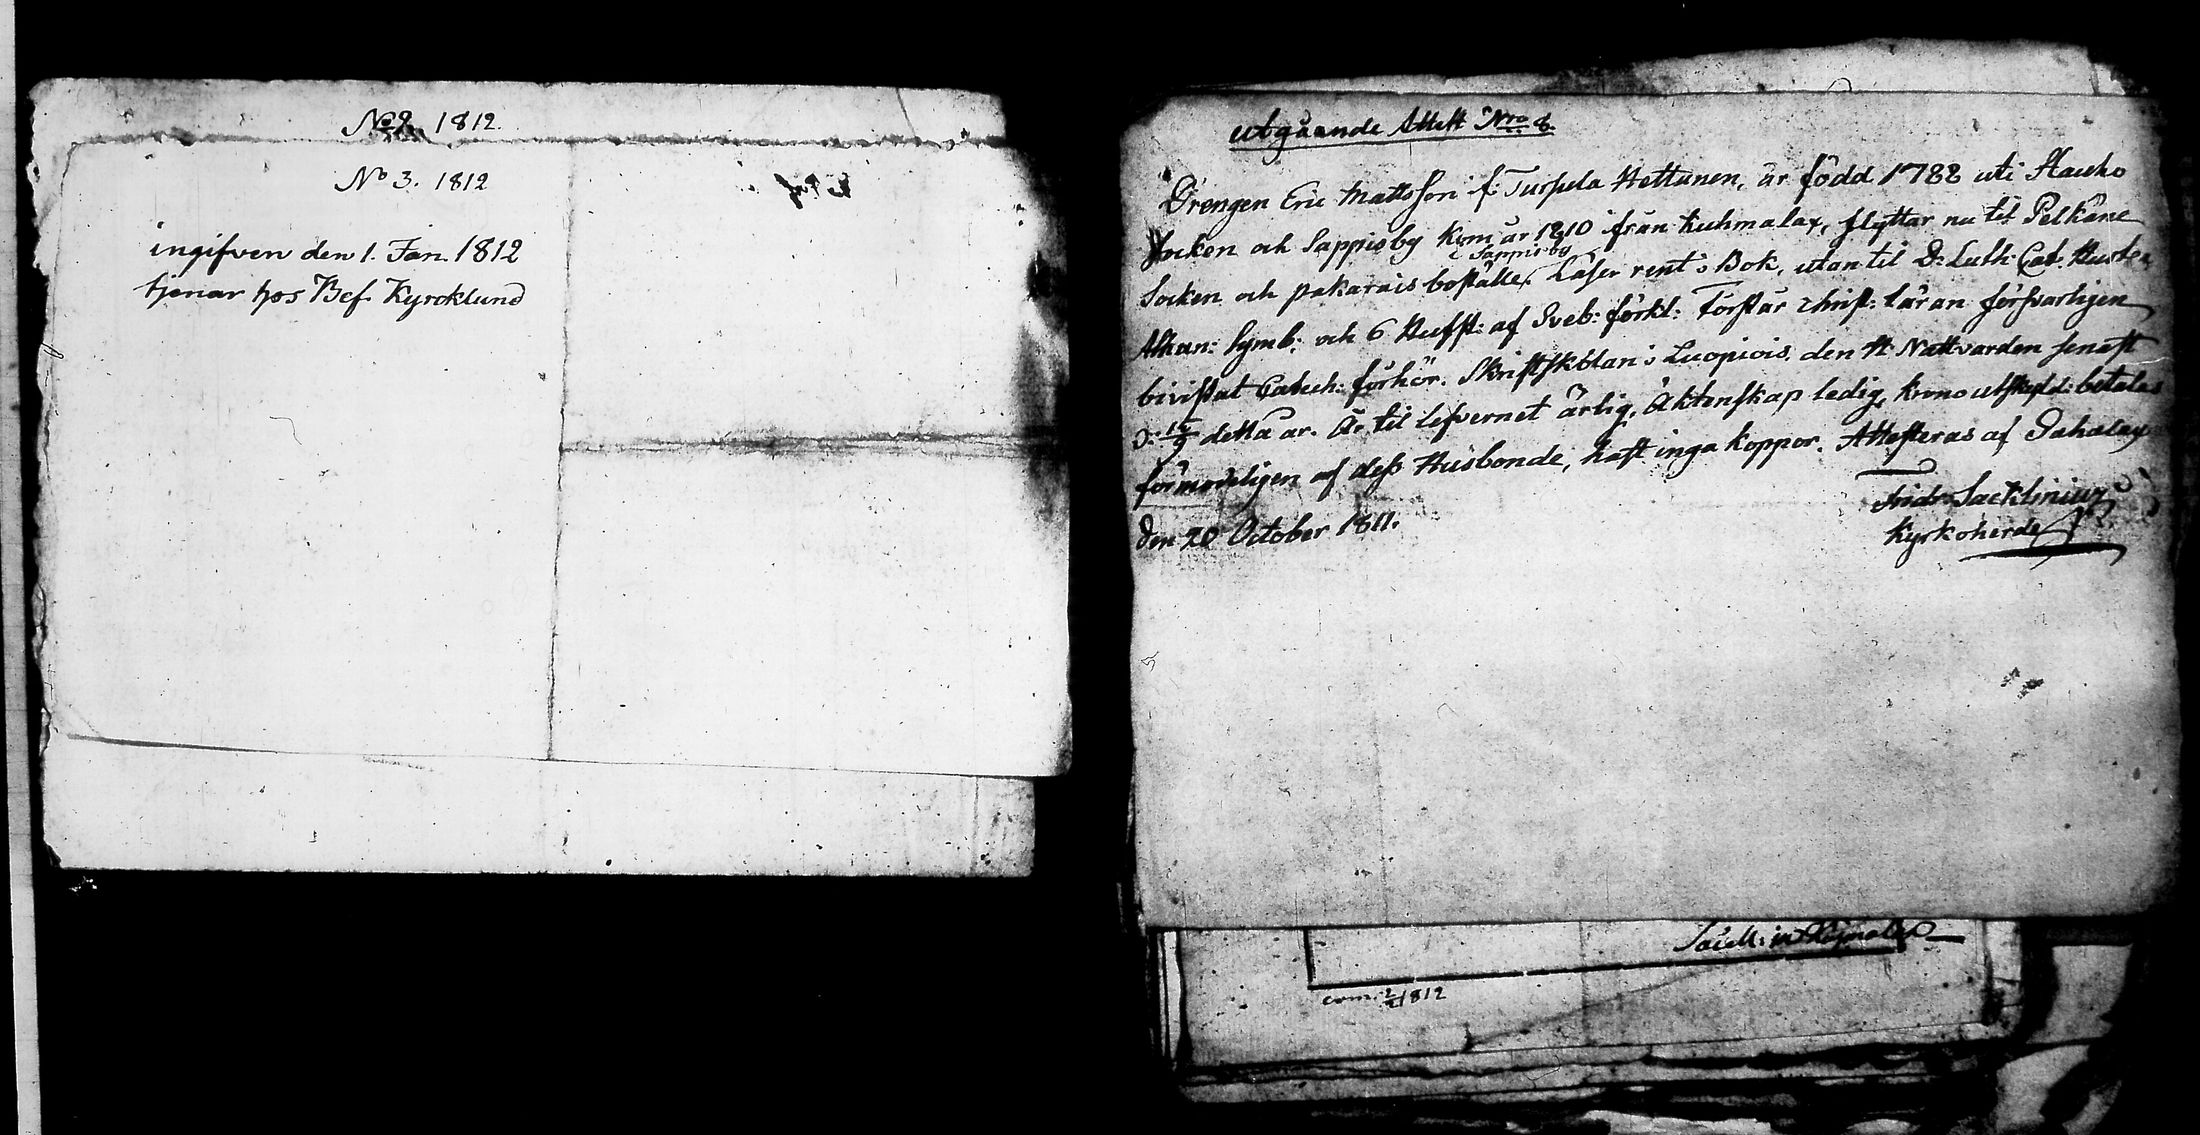 No 2. 1812.
No 3. 1812
ingifven den 1. Jan. 1812
tjenar hos Bef. Kyrcklund
utgäende Attest Nro 8.
Drengen Eric Mattsson f: Turpela Hettunen, är född 1788 uti Hauho
Socken och Sappisby kom år 1810 ifrån Kuhmalax, flyttar nu til Pelkäne
i Sappisby
Socken och pakarais boställe. Läser rent i Bok, utan til D: Luth: Cat. Hust:
Athan: Symb: och 6 Hufst: af Sveb: förkl: Förstår Christ: läran försvarligen
bivistat Catech: förhör. Skriftskolan i Luopiois, den H. Nattvarden senast
d: detta ar. Är til lefvernet ärlig, Äktenskap ledig, kronoutskyld: betalas
förmodeligen af dess Husbonde, haft inga koppor. Attesteras af Sahalax
den 20 October 1811.
Fridr: Sacklinius
Kyrkoherde
Sacell: in
1812